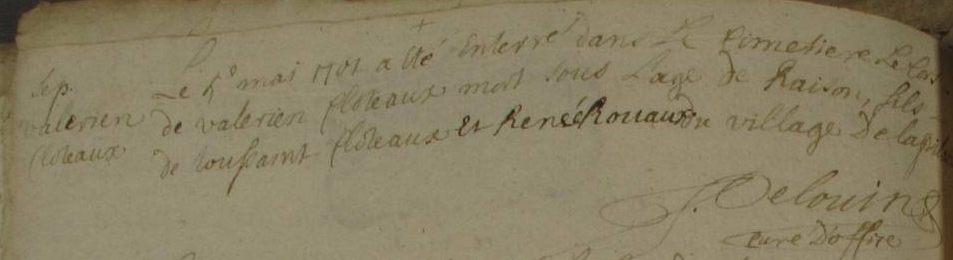 Sep.
valerien
floteaux.
Le 5e mai 1701 a été Enterré dans Le Cimetiere Le Cors
de valerien floteaux mort sous Lage de Raison, fils
de toussaint floteaux et Renée Rouaux du village De la
J. Delouin
curé D'offire